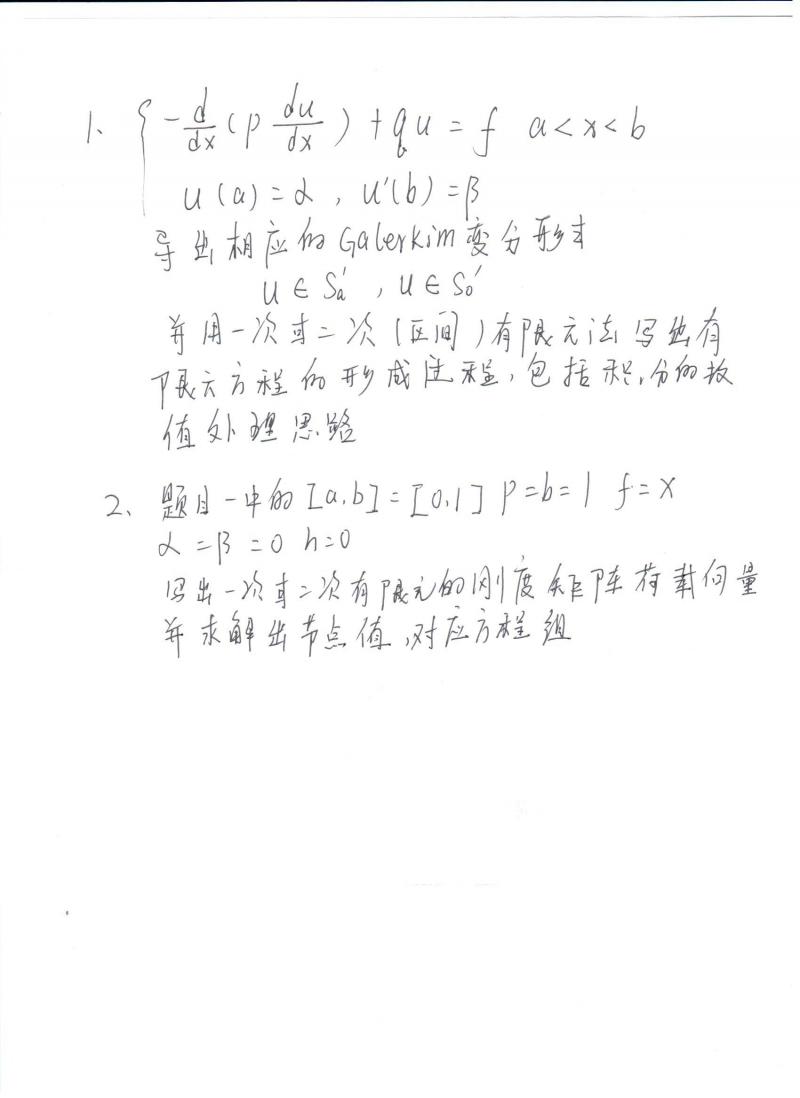 1、 { -d/dx (p du/dx) + qu = f a<x<b
u(a)=α , u'(b)=β
导出相应的Galerkim变分形式
u∈Sa' , u∈S0'
并用一次或二次(区间)有限元法写出有
限元方程的形成过程,包括积分的数
值处理思路
2、 题目一中的[a,b]=[0,1] p=b=1 f=x
α=β=0 h=0
写出一次或二次有限元的刚度矩阵荷载向量
并求解出节点值,对应方程组